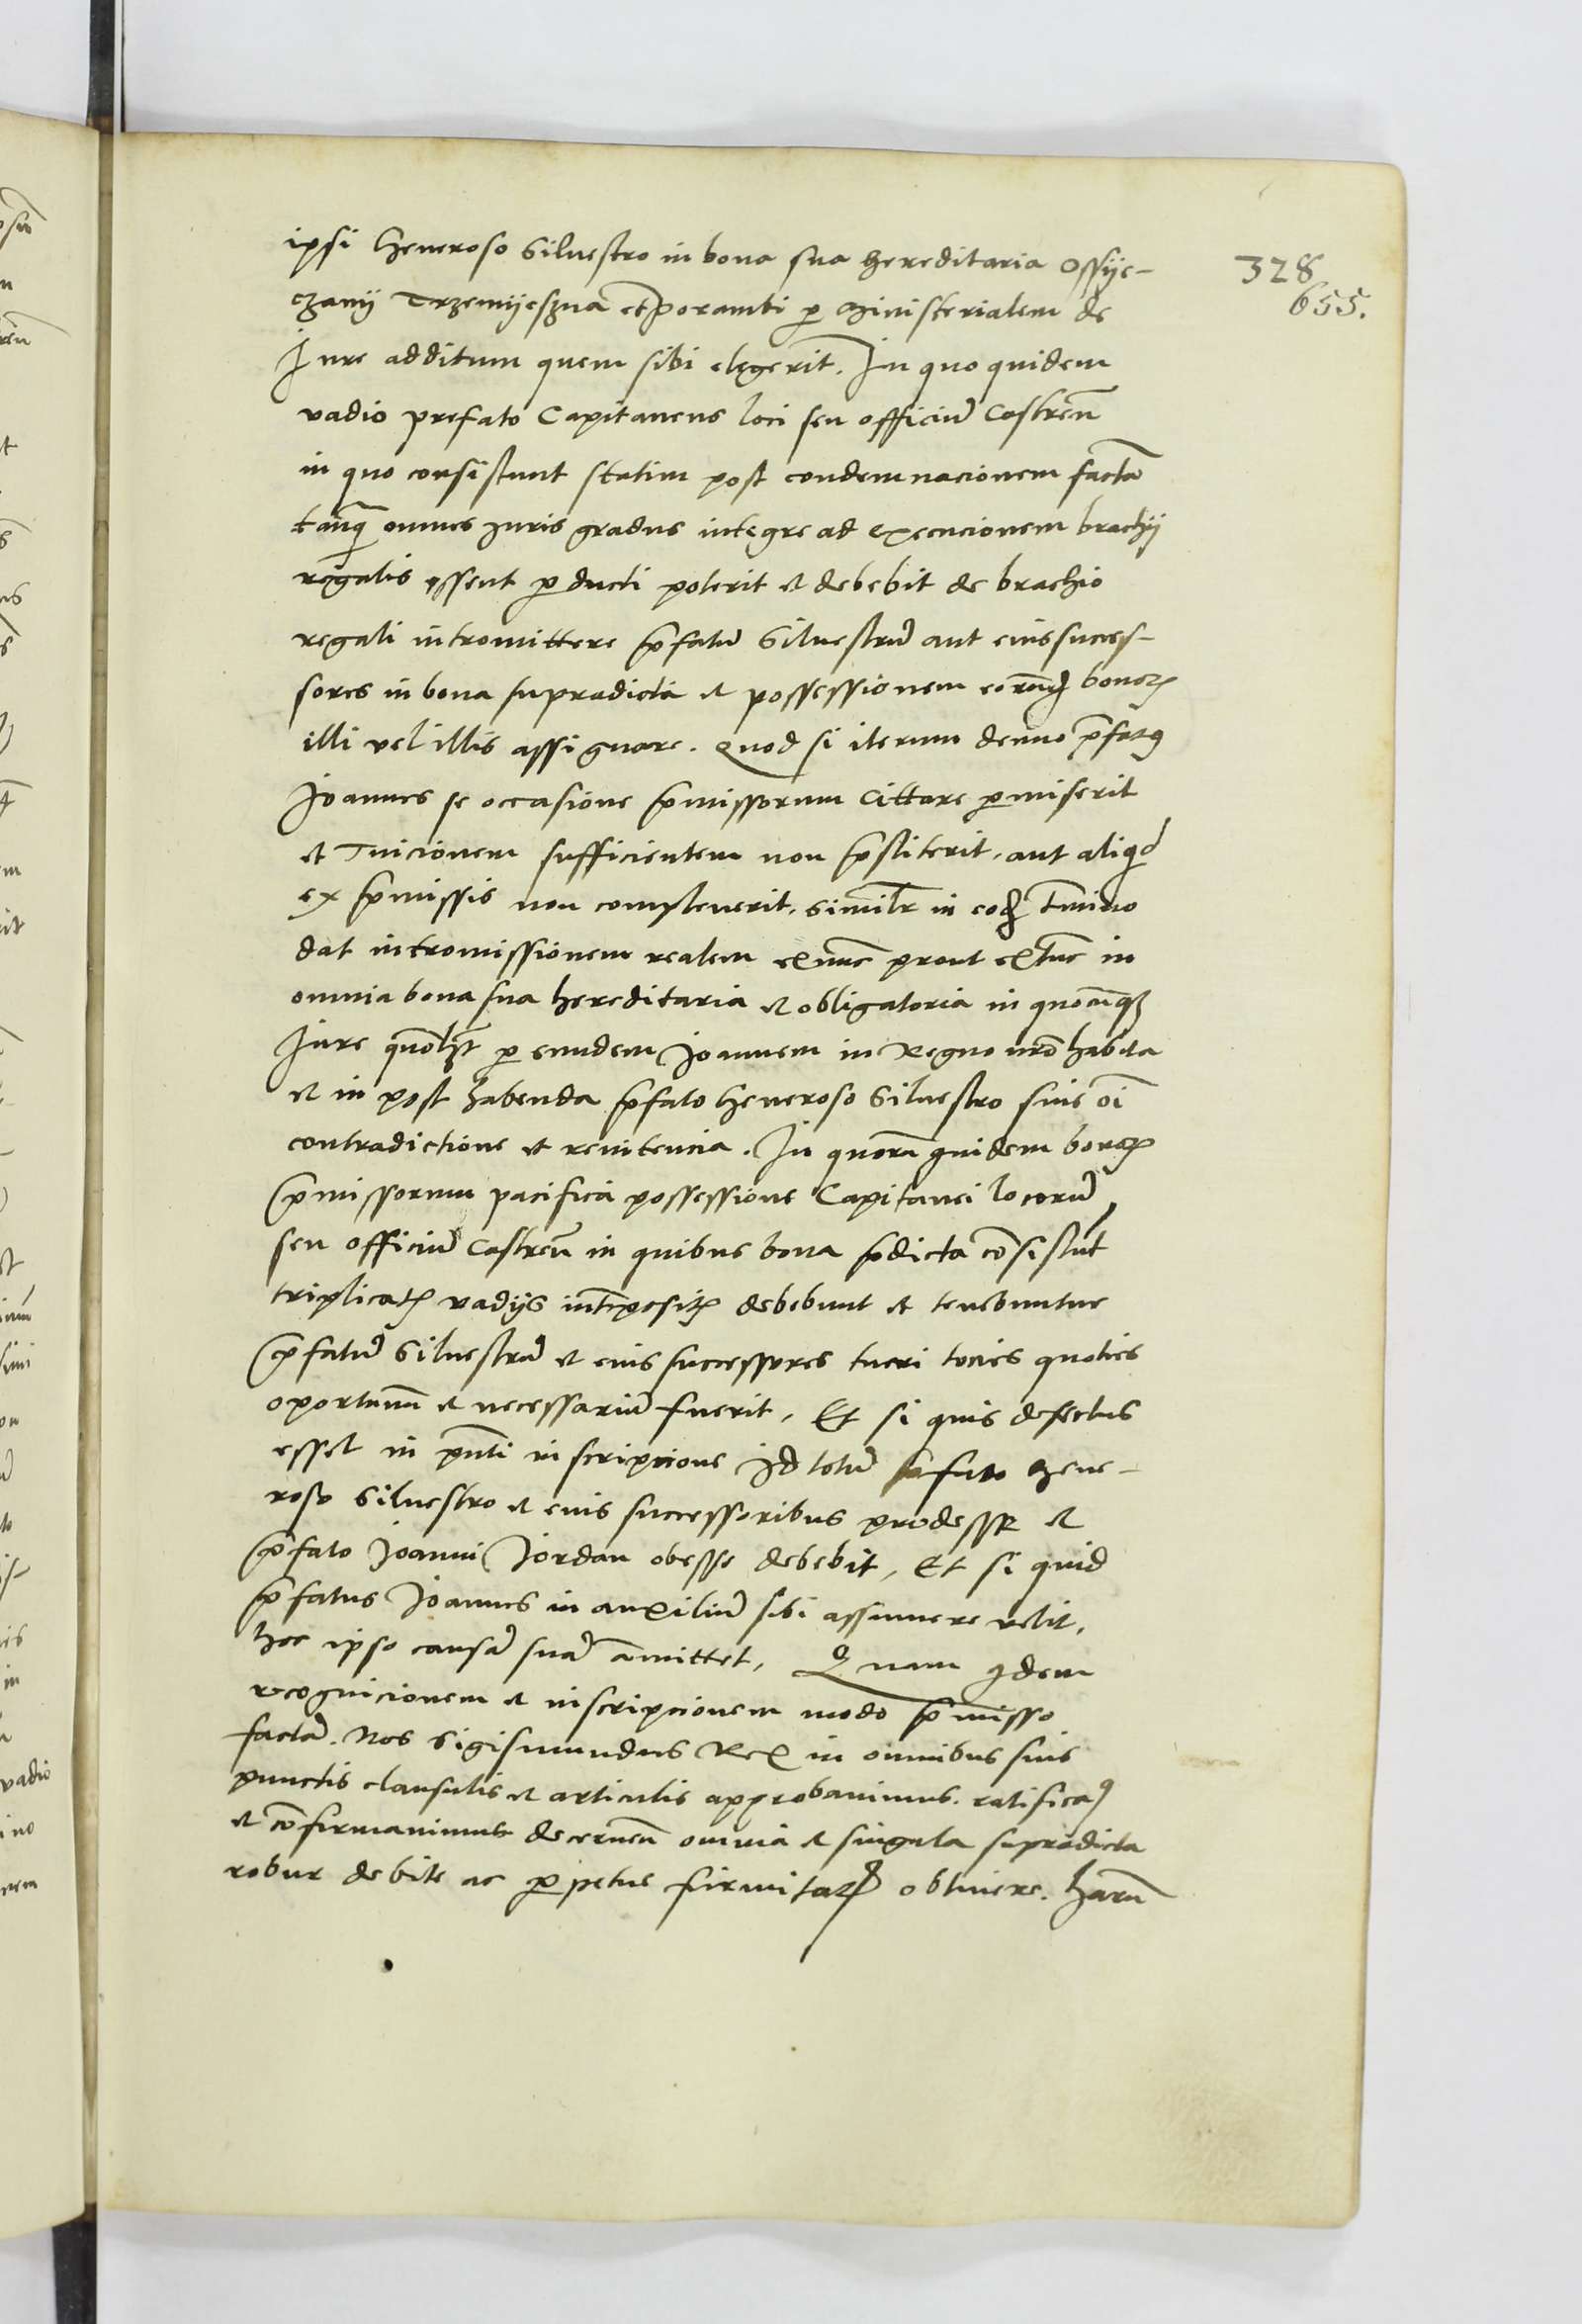 ipsi Generoso Siluestro in bona sua hereditaria Ossije-
czanij Trzemijeszna et Porambi per Ministerialem de
Jure additum quem sibi elegerit. In quo quidem
vadio prefato Capitaneus loci seu officiũ Castreñ
in quo consistunt statim post condemnacionem factã
tãnq̃ omnes Juris gradus integre ad execucionem brachij
regalis essent perducti poterit et debebit de brachio
regali intromittere p̃fatũ Siluestrũ aut eius succes-
sores in bona supradicta et possessionem bonoꝝ
illi vel illis assignare. Quod si iterum denuo p̃fatꝯ
Joannes se occasione p̃missorum cittare permiserit
et Tuicionem sufficientem non p̃stiterit, aut aliqd
ex p̃missis non compleuerit, similr in eod̃ tmino
dat intromissionem realem exnũc prout extũc in
omnia bona sua hereditaria et obligatoria in quocũqꝫ
Jure per eundem Joannem in Regno nr̃o habita
et in post habenda p̃fato Generoso Siluestro sine oĩ
contradictione et renitencia. In quorũ quidem bonoꝝ
p̃missorum pacifica possessione Capitanei locorũ
seu officiũ Castreñ in quibus bona p̃dicta cõsistũt
triplicatꝭ vadijs intẽpositꝭ debebunt et tenebuntur
p̃fatũ Siluestrũ et eius successores tueri tocies quoties
oportunũ et necessariũ fuerit, Et si quis defectus
esset in p̃nti inscripcione id totũ p̃fato Gene-
roso Siluestro et eius successoribus prodesse et
p̃fato Joanni Jordan obesse debebit, Et si quid
p̃fatus Joannes in auxiliũ sibi assumere velit,
hoc ipso causã suã amittet, Quam qdem
recognicionem et inscripcionem modo p̃misso
factã. Nos Sigismundus Rex in omnibus suis
punctis clausulis et articulis approbauimus. ratificaꝯ
et cõfirmauimus decerneñ omnia et singula supradicta
robur debite ac perpetue firmitatꝭ obtinere. harũ
328
655.